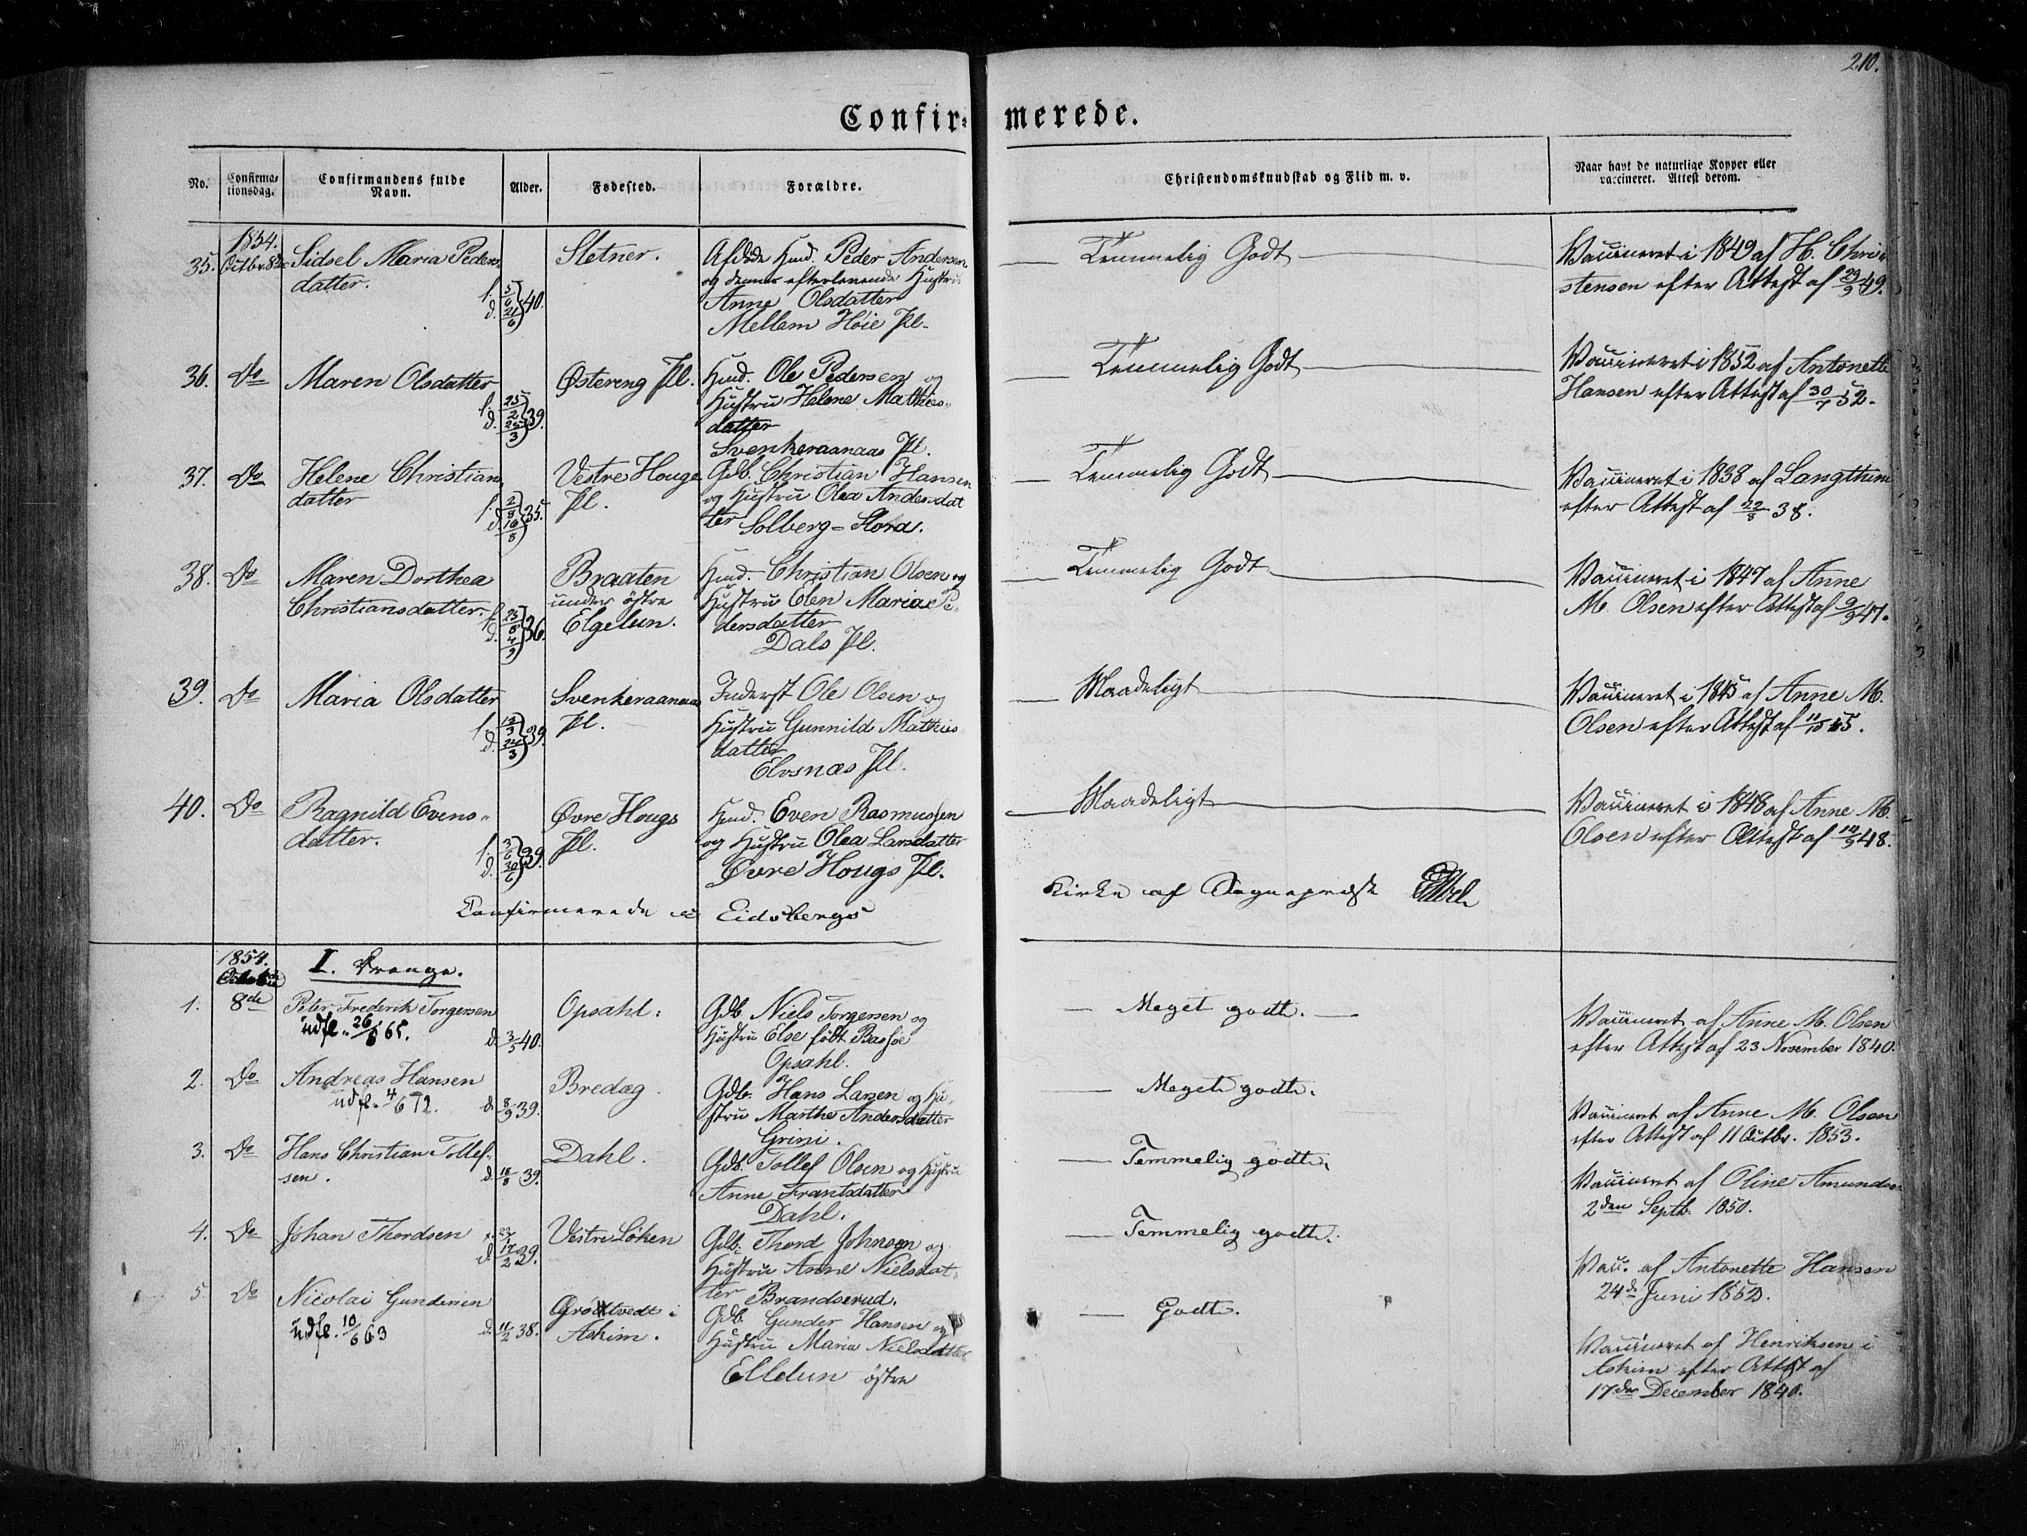 210.
Confir= merede.
No. Confirma=tionsdag. Confirmandens fulde Navn. Alder. Fødested. Forældre. Christendomskundskab og Flid m. v. Naar havt de naturlige Kopper eller vaccineret. Attest derom.
1854.
35. Octbr 8de Sidsel Maria Peders datter. f. 5/6 d. 21/6 40. Sletner. Afdøde Hmd. Peder Andersen og dennes efterlevende Hustru Anne Olsdatter Mellem Høie Pl. Temmelig Godt Vaccineret i 1849 af H. Christensen efter Attest af 29/9 49.
36. Do Maren Olsdatter f. 25/2 d. 25/3 39. Østereng Pl. Hmd. Ole Pedersen og Hustru Helene Mathies=datter Svenkeraanaas Pl. Temmelig Godt Vaccineret i 1852 af Antonette Hansen efter Attest af 30/7 52.
37. Do Helene Christian datter f. 2/8 d. 16/8 35. Vestre Houge Pl. Gdb. Christian Hansen og Hustru Olea Andersdatter Solberg=Stora. Temmelig Godt Vaccineret i 1838 af Langthim efter Attest af 22/8 38.
38. Do Maren Dorthea Christiansdatter f. 25/8 d. 4/9 36. Braaten under østre Elgetun. Hmd. Christian Olsen og Hustru Olen Maria Pedersdatter Dals Pl. Temmelig Godt Vaccineret i 1847 af Anne M. Olsen efter Attest af 9/9 47.
39. Do Maria Olsdatter f. 12/3 d. 24/3 39. Svenkeraanaas Pl. Inderst Ole Olsen og Hustru Gunnild Mathiesdatter Elvsnæs Pl. Maadeligt Vaccineret i 1845 af Anne M. Olsen efter Attest af 11/10 45.
40. Do Ragnild Evens=datter. f. 3/6 d. 30/6 39. Øvre Hougs Pl. Hmd. Even Rasmussen og Hustru Olea Larsdatter Øvre Hougs Pl. Maadeligt Vaccineret i 1848 af Anne M. Olsen efter Attest af 14/9 48.
Confirmerede i Eidsbergs Kirke af Sognepræst
1854. I. Drenge.
October
1. 8de Peter Frederik Torgersen d. 3/5 40. Opsahl. Gdb. Niels Torgersen og Hustru Else født Basføe Opsahl. Meget godt. Vaccineret af Anne M. Olsen efter Attest af 23 November 1840.
udfl. 26/8 65.
2. Do Andreas Hansen d. 8/9 39. Bredæg. Gdb. Hans Larsen og Hustru Marthe Andersdatter Grini. Meget godt. Vaccineret af Anne M. Olsen efter Attest af 11 Octbr. 1853.
udfl. 4/6 72.
3. Do Hans Christian Tollef=sen. d. 18/8 39. Dahl. Gdb. Tollef Olsen og Hustru Anne Frantsdatter Dahl. Temmelig godt. Vaccineret af Oline Amundsen 2den Septb. 1850.
4. Do Johan Thordsen f. 22/1 d. 17/2 39. Vestre Løken Gdb. Thord Johnsen og Hustru Anne Nielsdatter Brandserud. Temmelig godt. Vacc. af Antonette Hansen 24de Juni 1852.
5. Do Nicolai Gundersen d. 11/2 38. Grødtvedt i Askim. Gdb. Gunder Hansen og Hustru Maria Nielsdatter Elletun østre Godt. Vaccineret af Henriksen i Askim efter Attest af 17de December 1840.
udfl. 10/6 63